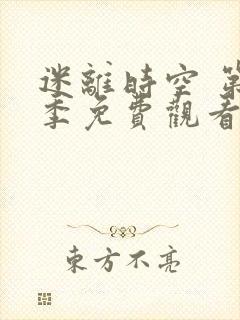 迷離時空 第
季免費觀看
東方不亮